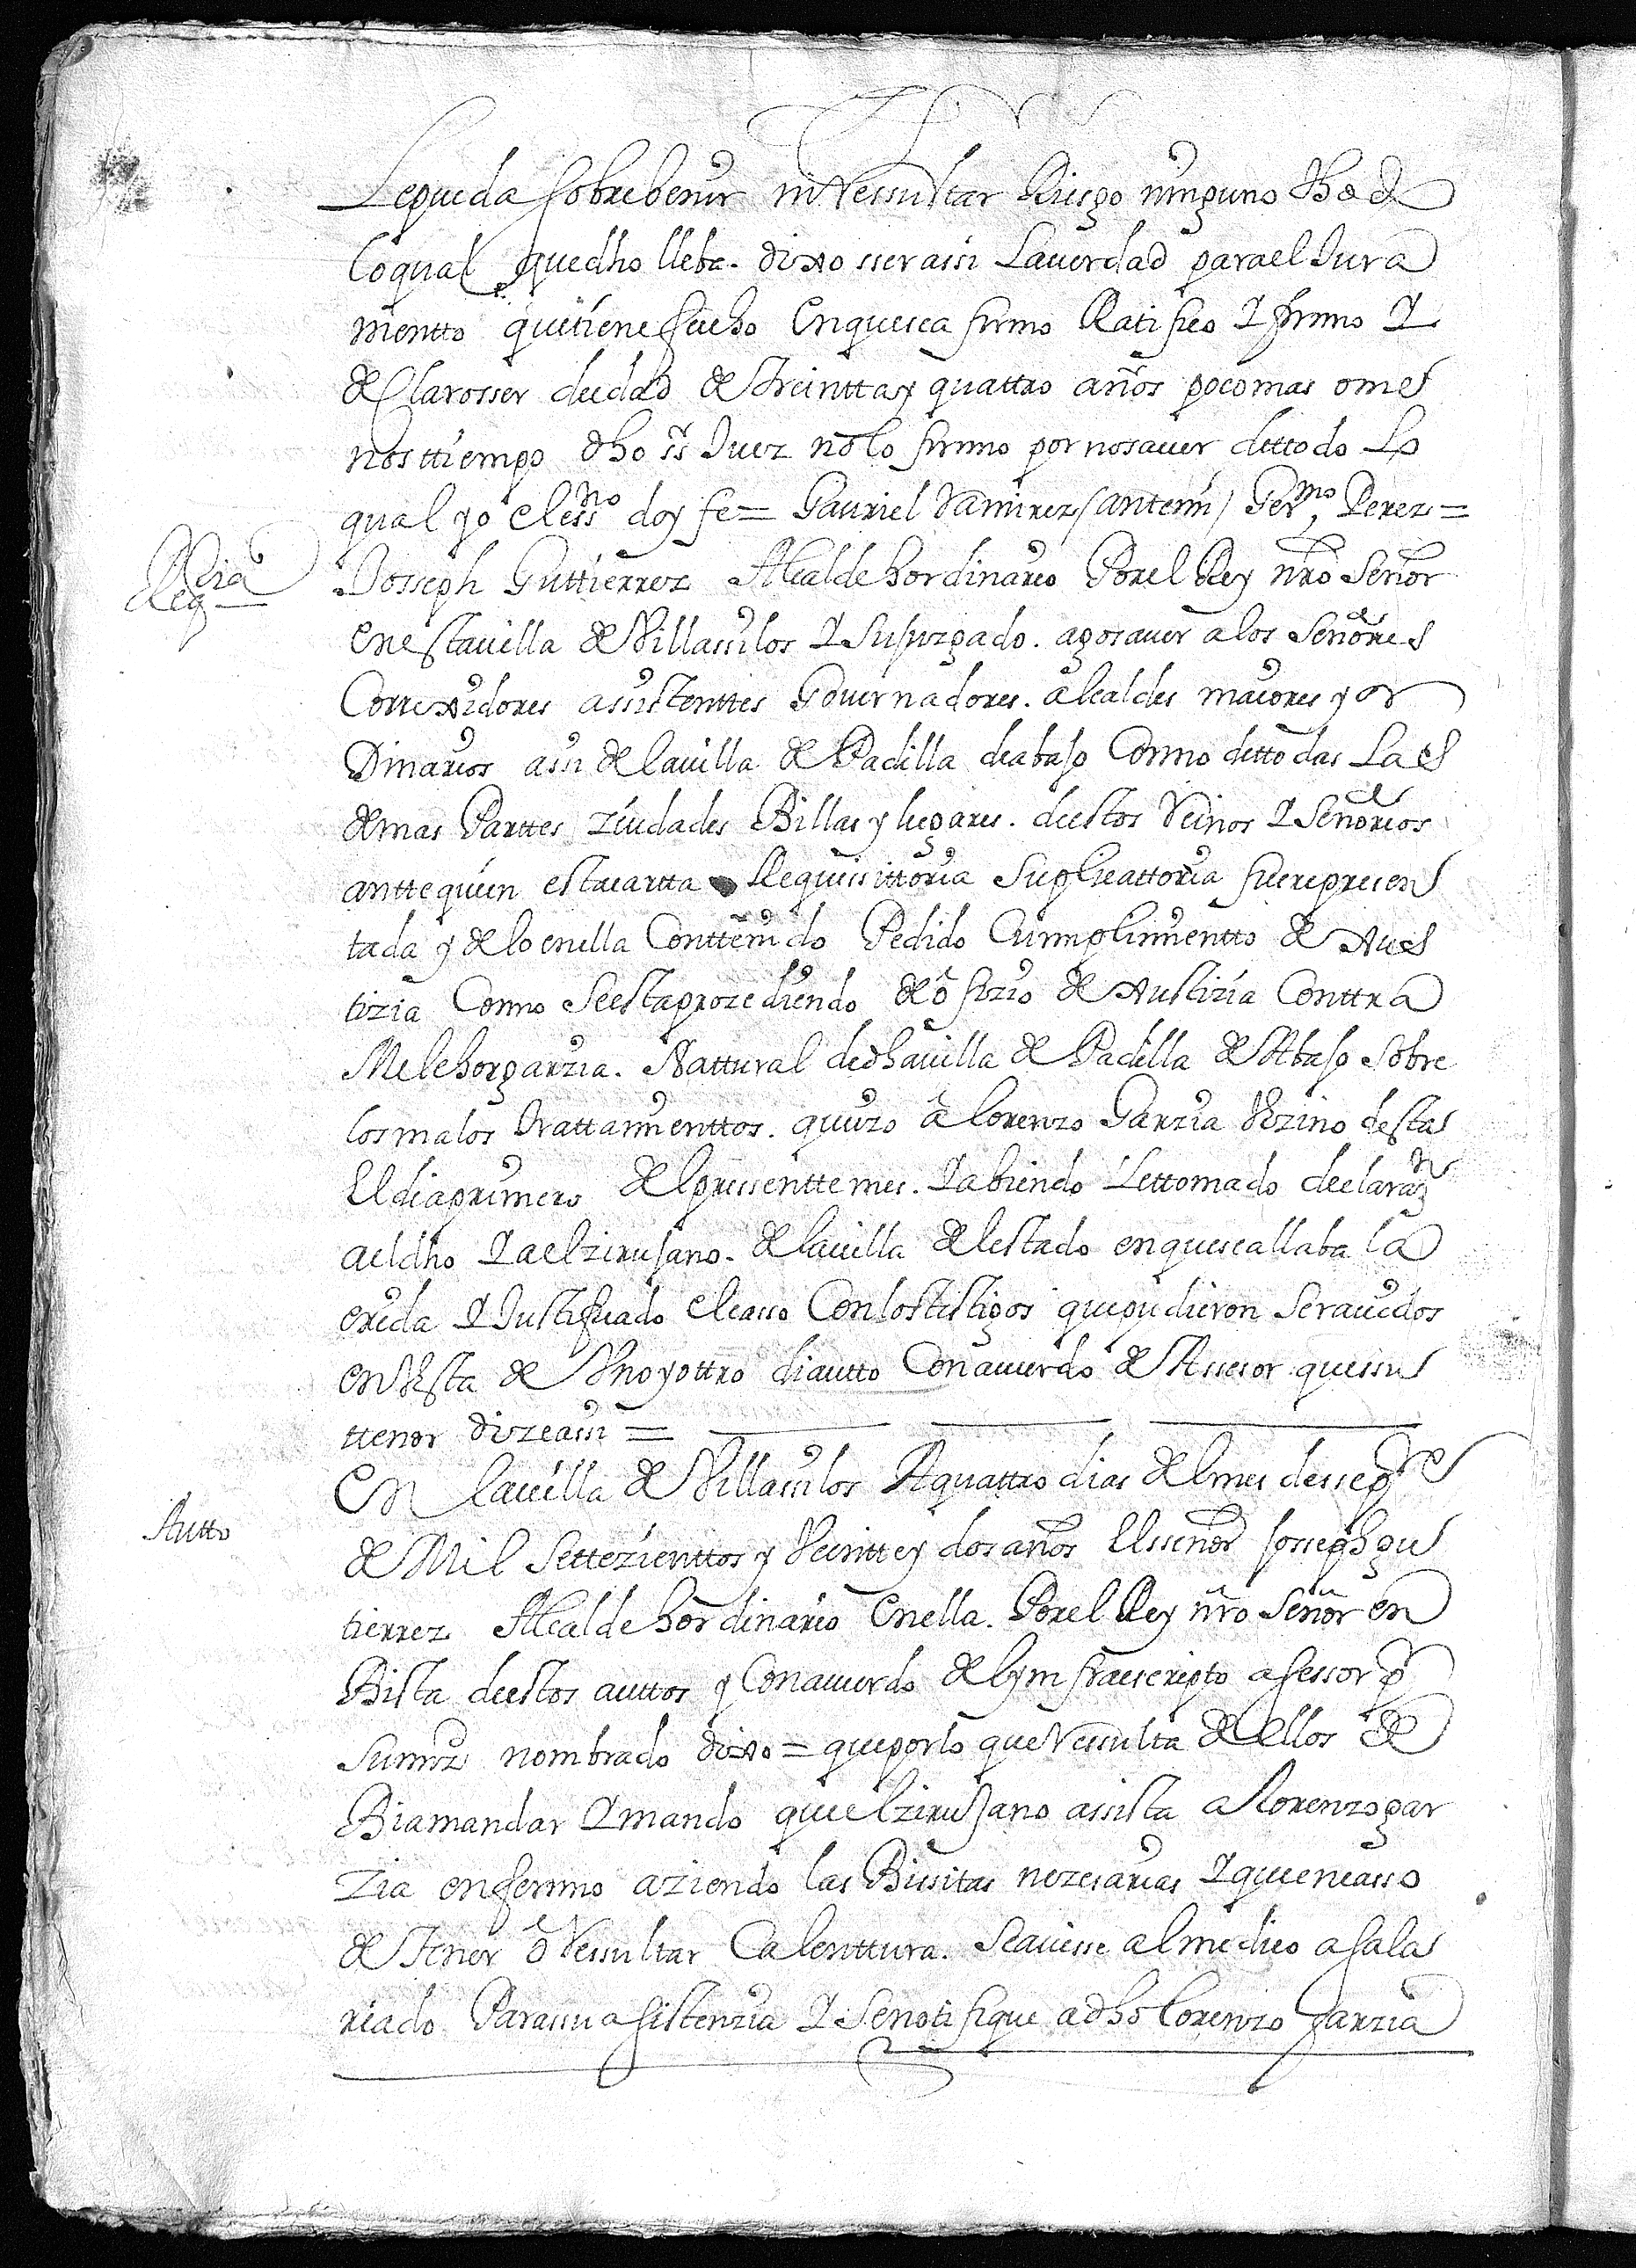 Lepueda sobrebenir ni Ressultar Riesgo ninguno thod
lo qual que dho lleba. dixo sser assi La verdad para el Jura
mentto que tiene fecho En que sea firmo Ratifico Y firmo Y
de Claro sser de edad de treintta y quattro años poco mas o me
nos ttiempo dho ss Juez no lo firmo por no saver de ttodo Lo
qual yo el essno doy fe = Gauriel Ramirez / antemi / Germo Perez =
Reqria
Josseph Guttierrez Alcalde hordinario Por el Rey nro Señor
en esta villa de Villasilos Y su juzgado. ago saver a los Señores
Correxidores assistenttes Governadores. alcaldes maiores y or
Dinarios assi de la villa de Padilla de abajo Como de ttodas Las
demas Parttes ziudades Billas y lugares. de estos Reinos Y Señorios
antte quien esta cartta Requissittoria Suplicattoria fuere presen
tada y de lo en ella Conttenido Pedido Cumplimientto de Xus
tizia Como se esta prozediendo de ofizio de Xustizia Conttra
Melchor garzia. Nattural de dha villa de Padilla de Abajo sobre
los malos trattamienttos. que izo a lorenzo Garzia Vezino de esta
El dia primero del pressentte mes. Y abiendo Le ttomado declarazn
a el dho Y a el zirujano. de la villa del estado en que se allaba la
erida Y Justificado el casso Con los testigos que pudieron ser avidos
en Vista de Uno y ottro di autto Con acuerdo de Assesor que su
ttenor dize assi =
Autto
En la villa de Villasilos A quattro dias del mes de sepre
de Mil Settezienttos y Veintte y dos años El señor Josseph gu
tierrez Alcalde hordinario en ella. Por el Rey nro Señor en
Bista de estos auttos y Con acuerdo del ynfraescripto asessor pr
su mrz nombrado dixo = que por lo que Ressulta de ellos de
Bia mandar Y mando que el zirujano assista a lorenzo gar
zia enfermo aziendo las Bisitas nezesarias Y que en casso
de tener o Ressultar Calenttura. se avisse al medico asala
riado Para su asistenzia Y se notifique a dho lorenzo Garzia